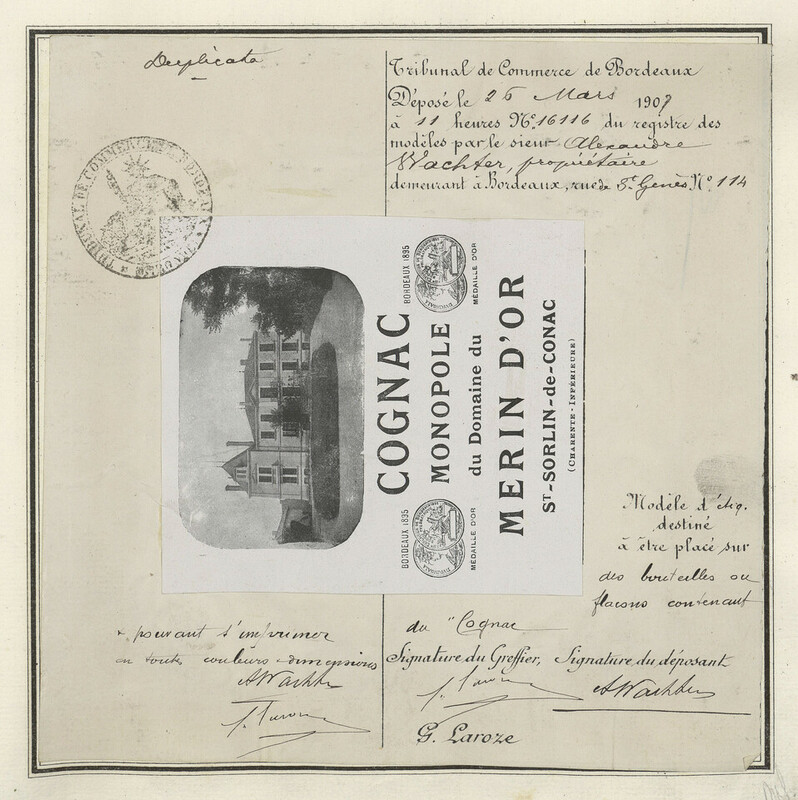 Duplicata
Tribunal de Commerce de Bordeaux
Déposé le 26 Mars 1907
à 11 heures Nº 16116 du registre des
modèles par le sieur Alexandre
Wachter, propriétaire
demeurant à Bordeaux, rue de St Genès Nº 114
TRIBUNAL DE COMMERCE BORDEAUX
COGNAC
MONOPOLE
du Domaine du
MERIN D'OR
ST-SORLIN-de-CONAC
(CHARENTE-INFÉRIEURE)
BORDEAUX 1895
MÉDAILLE D'OR
BORDEAUX 1895
MÉDAILLE D'OR
Modèle d'étiq.
destiné
à être placé sur
des bouteilles ou
flacons contenant
du "Cognac
pouvant s'imprimer
en toutes couleurs & dimensions
AWachter
Signature du Greffier, Signature du déposant
AWachter
G. Laroze